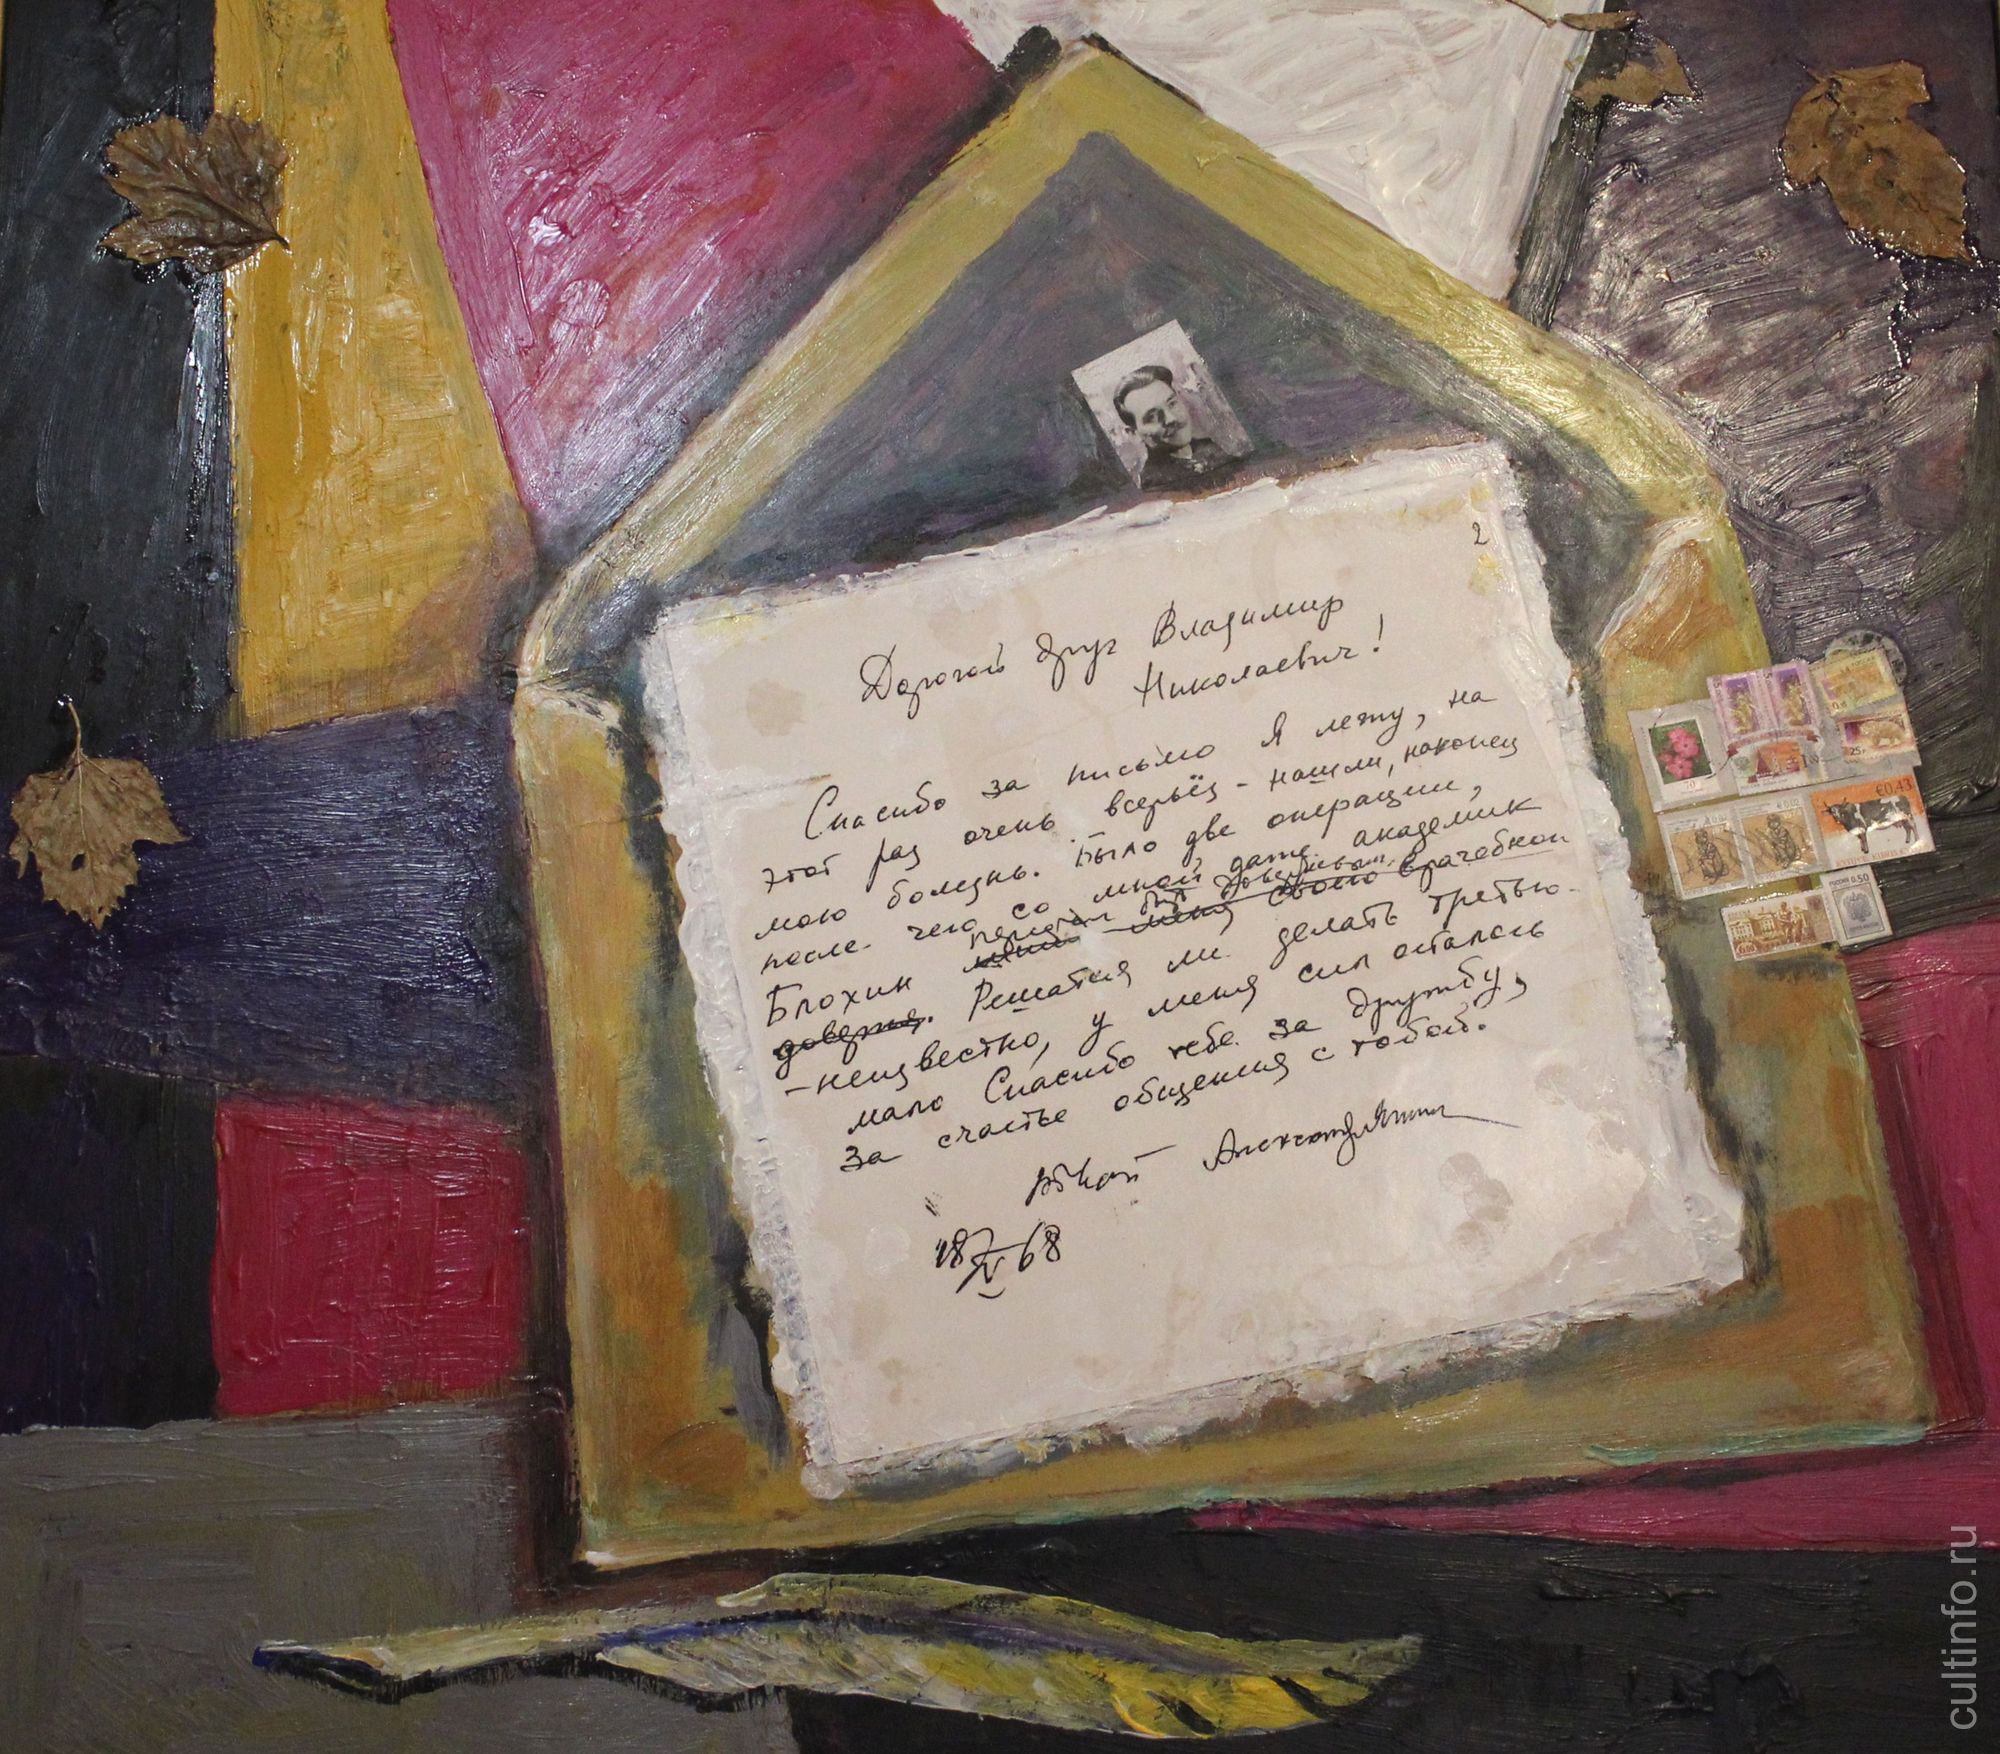 2
Дорогой друг Владимир
Николаевич!
Спасибо за письмо Я лежу, на
этот раз очень всерьёз – нашли, наконец
мою болезнь. Было две операции,
после чего со мной, даже академик
Блохин меня своею врачебной
доверил. Решатся ли делать третью-
– неизвестно, у меня сил осталось
мало Спасибо тебе за дружбу,
за счастье общения с тобой.
Твой Александр Яшин
18/V–68
70
25р
€0.43
0.50
cultinfo.ru